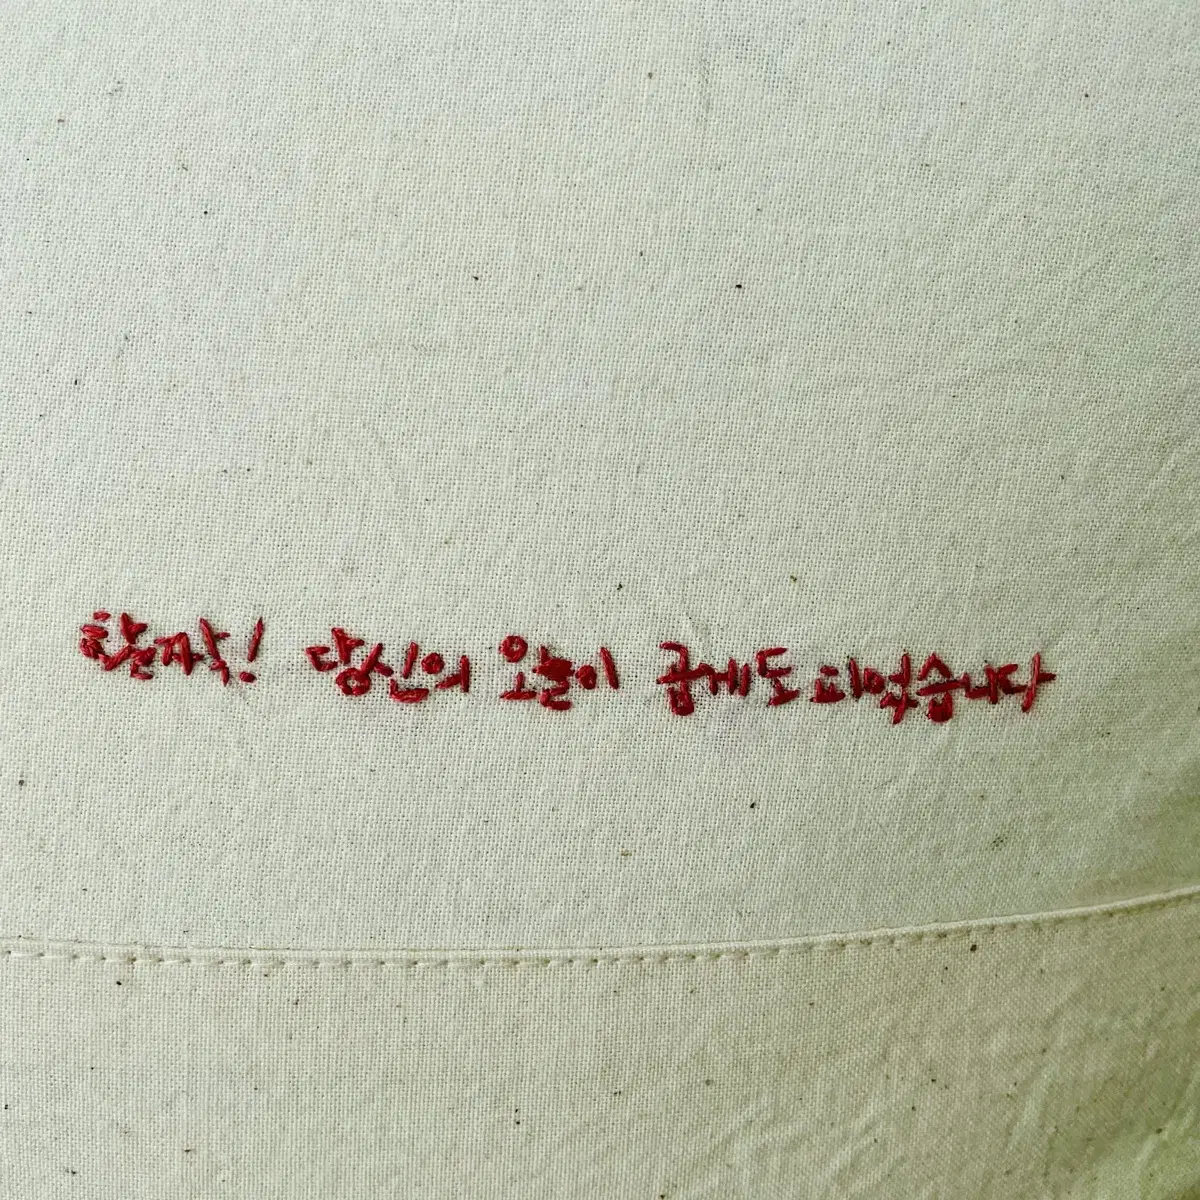 활짝! 당신의 오늘이 곱게도 피었습니다